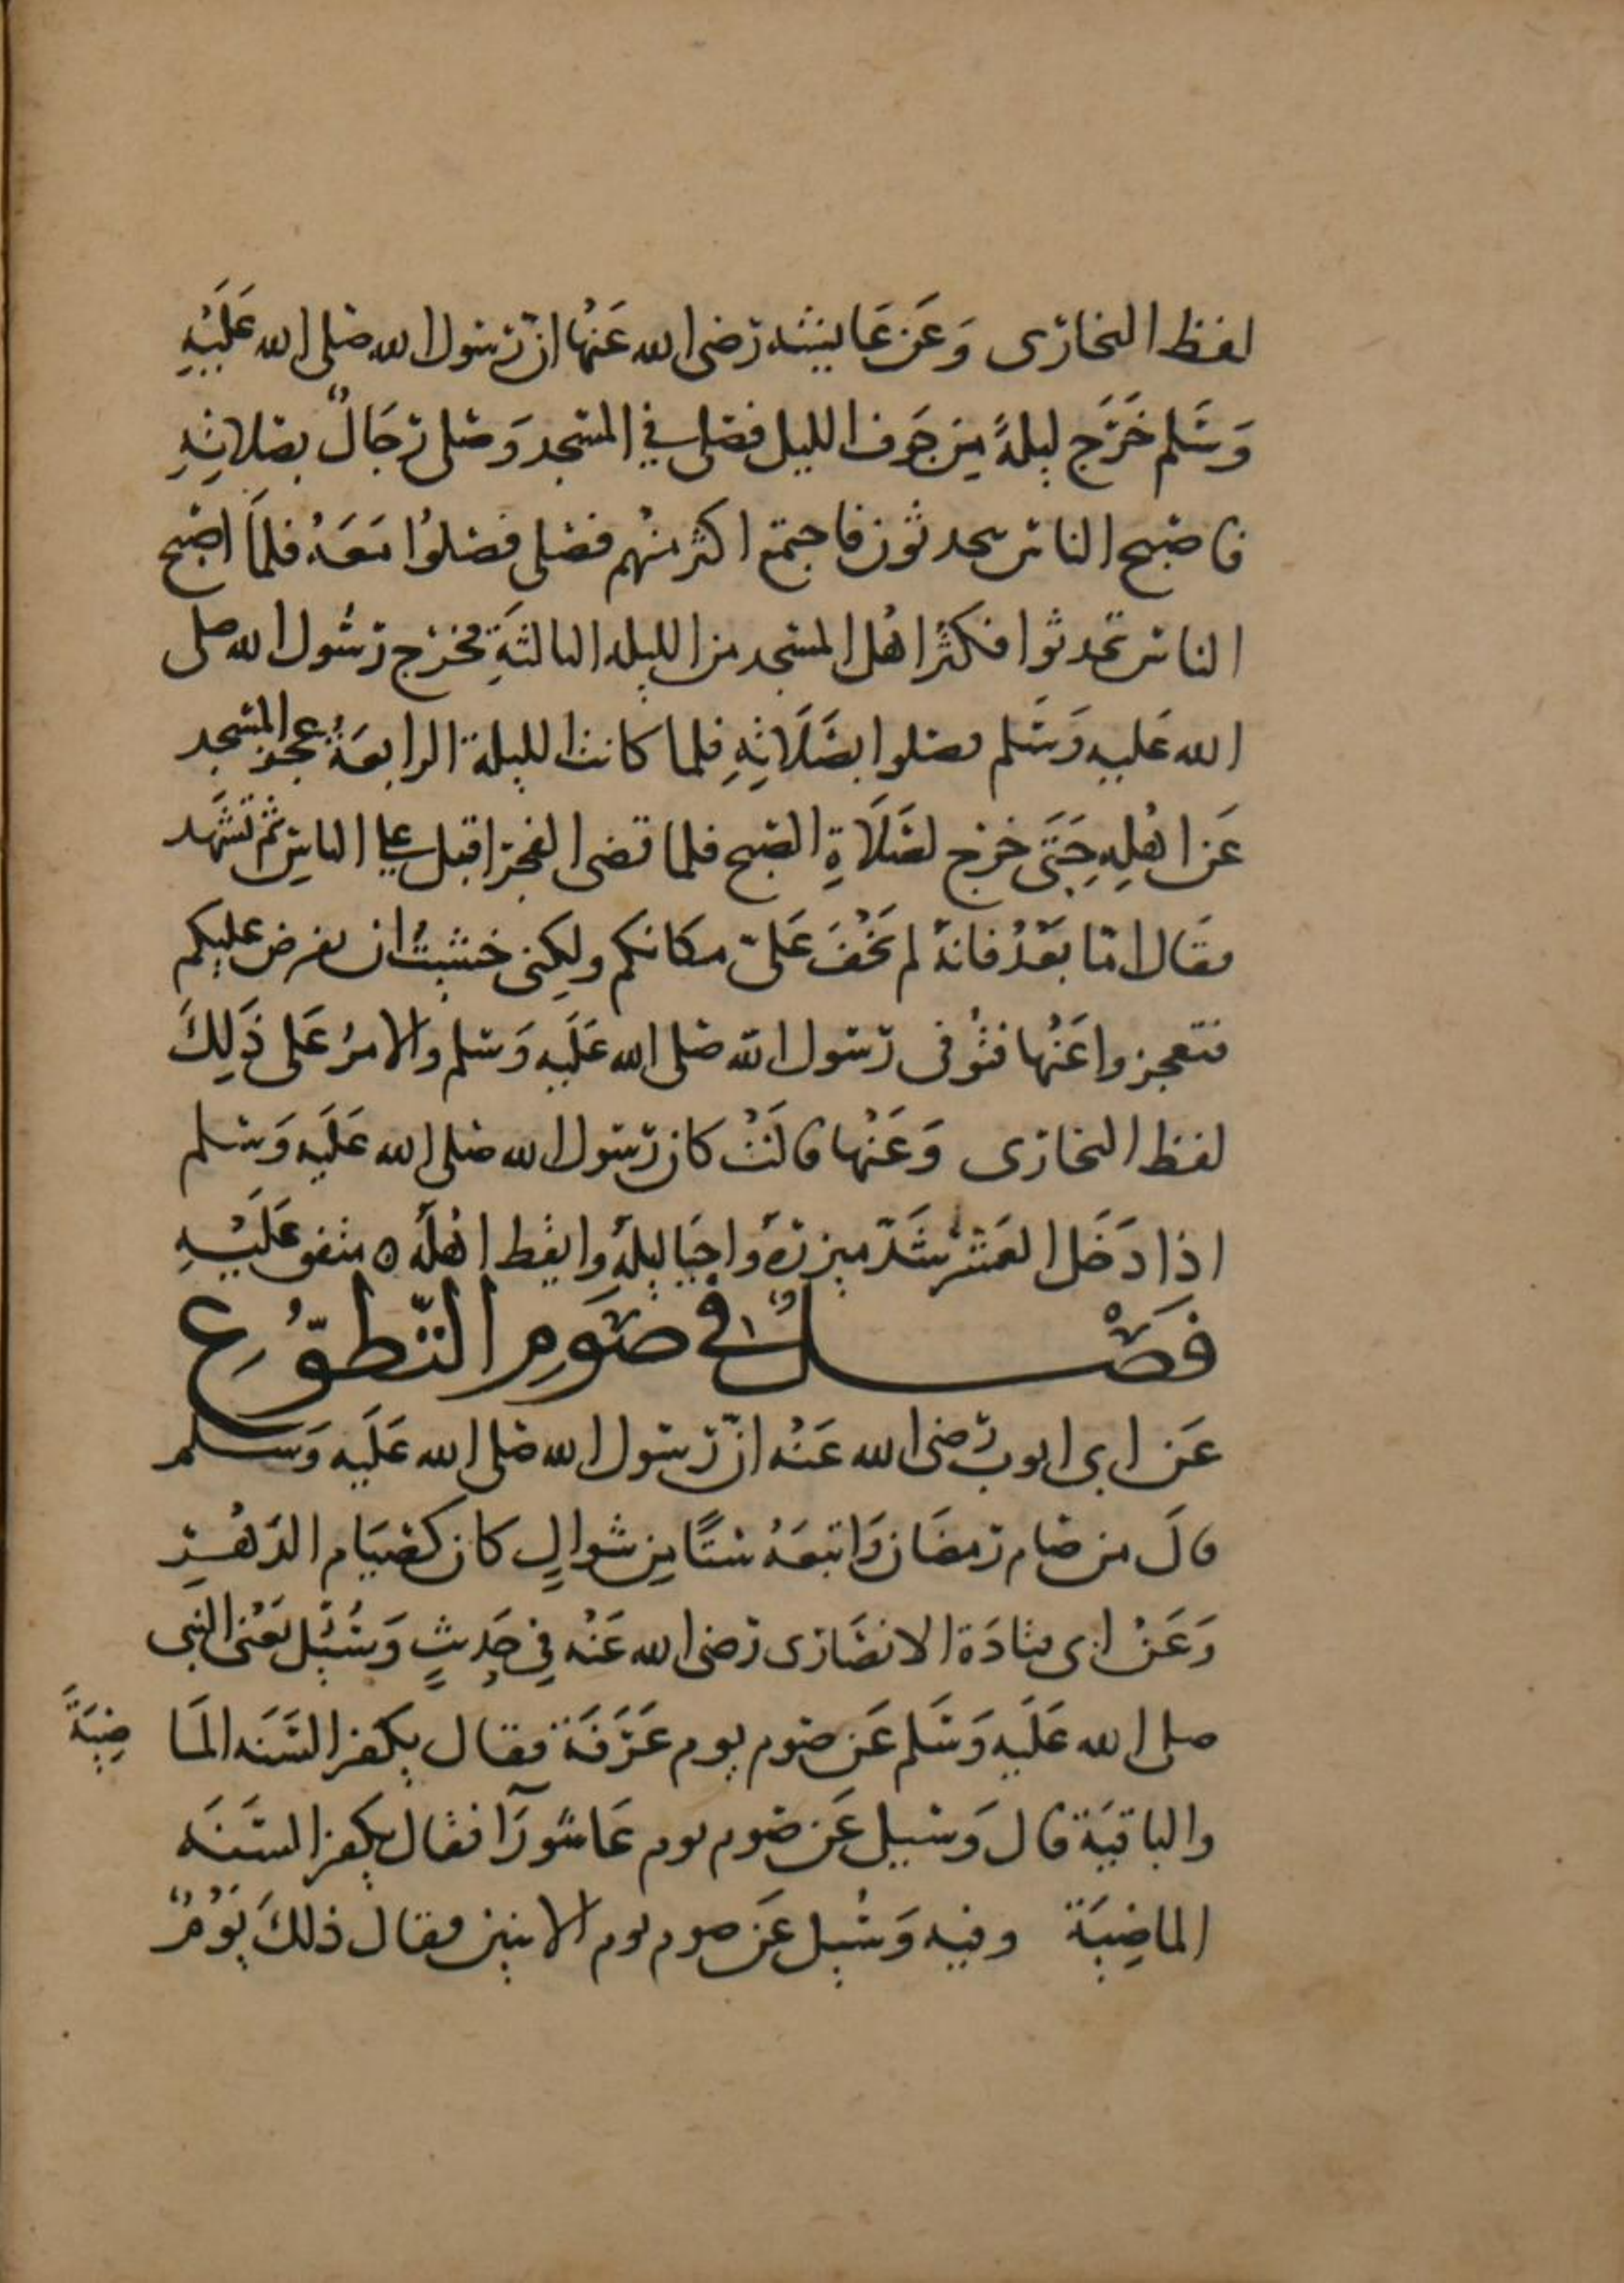 لفظ البخارى وَعَن عَايشه رَضى الله عَنْها انّ رسول الله صلى الله عَلَيْهِ
وَسَلم خَرَج ليلةً مِن جَوف الليل فصلى في المسجد وَصلى رجَالٌ بصلاتِهِ
فاصبح الناس يتحدثون فاجتمع اكثر منهم فصلى فصلوُا مَعَهُ فلمّا اصبح
الناس تحدثوا فكثُر اهْل المسجد من الليله الثالثَةِ فخرج رسُول الله صلى
الله عَليه وَسَلم فصلوا بصَلَاتِهِ فلما كانت الليلة الرابعَةُ عجز المسجد
عَن اهْلِهِ حَتَى خرج لصَلَاةِ الصبح فلما قضى الفجر اقبل على الناسِ ثم تشَهد
فقَال امّا بعَدُ فانهُ لم يَخْفَ عَلىّ مكانكم ولكِنى خشيتُ ان يفرض عليكم
فتعجزوا عَنْها فتُوفى رسول الله صلى الله عَلَيه وَسلم والامرُ عَلى ذَلِكَ
لفظ البخارى وَعَنْها قالَتْ كان رسول الله صلى الله عَلَيه وَسلم
اذا دَخَل العَشرُ شَدّ ميزرَهُ واحيَا ليلَهُ وايقظ اهْلَهُ ه متفق عَلَيْهِ
فَصْلٌ في صَومِ التّطوّعِ
عَن ابى ايوب رَضى الله عَنْه انّ رسول الله صلى الله عَلَيه وَسلم
قالَ من صَام رمضَان وَاتبعَهُ ستًا مِن شوالٍ كان كصيَام الدَهْرِ
وَعَنْ ابى قتادَة الانصَارى رَضى الله عَنْه في حَدِيثٍ وَسُئِل يَعْنى النبى
صلى الله عَلَيه وَسَلم عَن صَوم يوم عَرَفَة فقَال يكفر السَنَه الماَضِيَةً
والباقيَة قال وَسيل عَن صَوم يوم عَاشورَآ فقَال يكفر السَنَه
الماضِيَة وفيه وَسُيل عَن صوم يوم الاثنين فقال ذلكَ يَوْمٌ